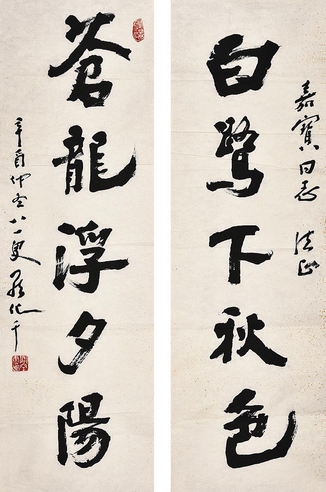 嘉寶同志 法正
白鷺下秋色
蒼龍浮夕陽
辛酉仲冬八一叟